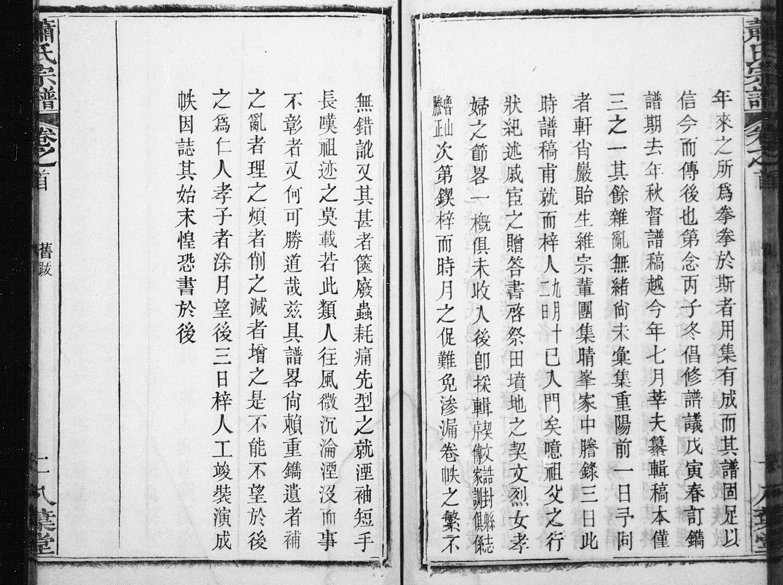 蕭氏宗譜
卷之首
年來之所爲拳拳於斯者用集有成而其譜固足以
信今而傳後也第念丙子冬倡修譜議戊寅春訂鐫
譜期去年秋督譜稿越今年七月莘夫纂輯稿本僅
三之一其餘雜亂無緒尙未彙集重陽前一日予同
者軒肖巖貽生維宗輩團集晴峯家中謄錄三日此
時譜稿甫就而梓人九月十二日已入門矣噫祖父之行
狀紀述戚宦之贈答書啓祭田墳地之契文烈女孝
婦之節畧一槪俱未收入後卽採輯
次第鍥梓而時月之促難免滲漏卷帙之繁不
無錯訛又其甚者篋廢蟲耗痛先型之就湮袖短手
長嘆祖迹之莫載若此類人往風微沉淪湮沒而事
不彰者又何可勝道哉兹具譜畧尙賴重鐫遺者補
之亂者理之煩者削之減者增之是不能不望於後
之爲仁人孝子者涂月望後三日梓人工竣裝演成
帙因誌其始末惶恐書於後
蕭氏宗譜
卷之首
舊跋
二
八葉堂